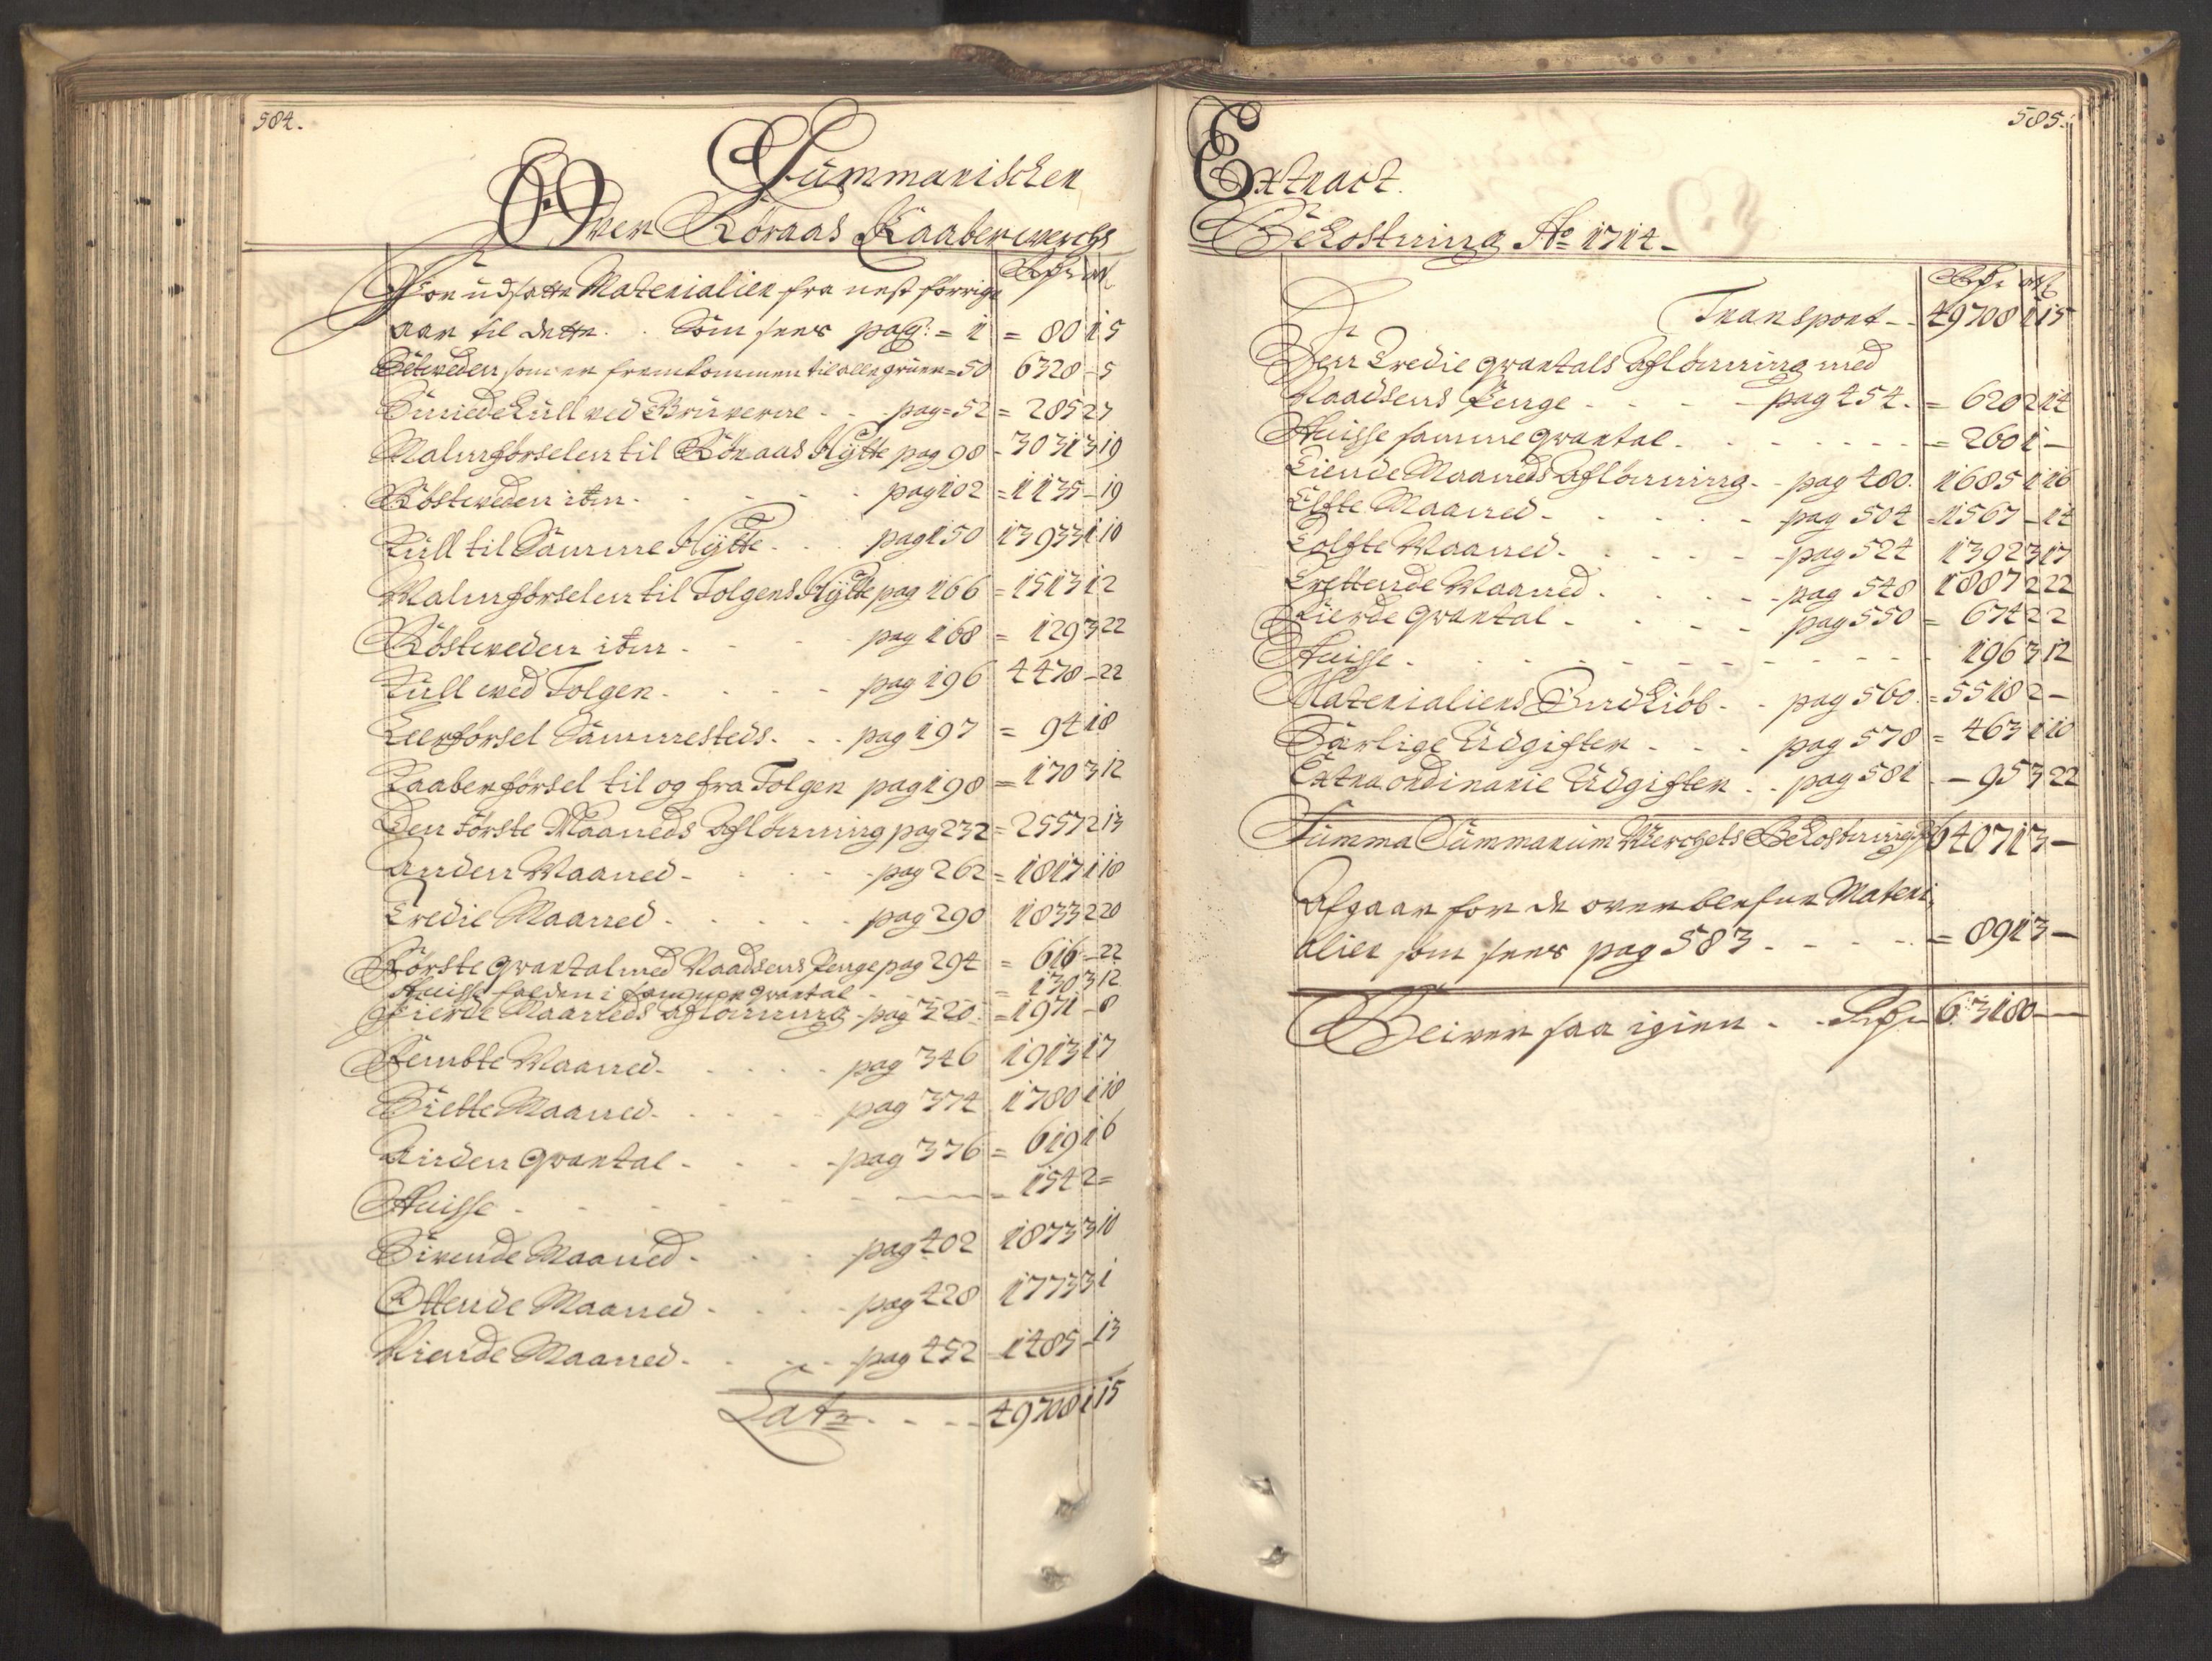 584.
Summarischer
Over Röraas Kaaberwerchs
For udsatte Materialier fra nest forrige
aar til dette . . Som sees pag: = 1 = 80 1 5
Setweden som er fremkommen til alle gruer = 50 6328 - 5
Smiede Kull ved Gruverne - - pag = 52 = 285 2 7
Malmförselen til Röraas Hytte pag 98 - 3031 3 19
Röstweden itm - - - - - pag 102 = 1135 - 19
Kull til Samme Hytte - - - pag 150 13933 1 10
Malmförselen til Tolgens Hytte pag 166 = 1513 1 2
Röstweden itm - - - pag 168 = 129 3 22
Kull wed Tolgen - - - - pag 196 4478 - 22
Leerförsel Sammesteds - - - pag 197 = 94 1 8
Kaaberförsel til og fra Tolgen pag 198 = 170 3 12
Den Förste Maaneds Aflönning pag 232 = 2557 2 13
Anden Maaned - - - - pag 262 = 1817 1 18
Tredie Maaned - - - - - pag 290 1833 2 20
Förste qvartal med Raadsens Penge pag 294 = 616 - 22
Huisse falden i samme qvartal - - - = 130 3 12
Fierde Maaneds Aflönning - pag 320 = 1971 - 8
Fembte Maaned - - - - - pag 346 1913 1 7
Siette Maaned - - - - - pag 374 1780 1 18
Anden qvartal - - - - pag 376 = 619 1 6
Huisse - - - - - - = 154 2 =
Sivende Maaned - - - pag 402 1873 3 10
Ottende Maaned - - - - pag 428 1773 3 1
Niende Maaned - - - - pag 452 - 1485 - 13
Lat - - - - 49708 1 15
585.
Extract.
Bekostning Ao 1714 -
Transport - - 49708 1 15
Den Tredie qvartals Aflönning med
Raadsens Penge - - - - pag 454 - = 620 2 14
Huisse samme qvartal - - - - - - - = 260 1 -
Tiende Maaneds Aflönning - - pag 480 1685 1 16
Elfte Maaned - - - - - pag 504 = 1567 - 14
Tolfte Maaned - - - - - pag 524 1392 3 17
Trettende Maaned - - - - pag 548 1887 2 22
Fierde qvartal - - - - pag 550 = 674 2 2
Huisse - - - - - - - - - - - 196 3 12
Materialiens Indkiöb - - pag 560 = 5518 2 -
Særlige Udgifter - - - pag 578 = 463 1 10
Extra ordinarie Udgifter - - pag 581 - 95 3 22
Summa Summarum Werchets Bekostning 64071 3 -
Afgaar for de overblefne Materi,
alier som sees pag 583 - - - - = 891 3 -
Bliver saa igien - - 63180 -